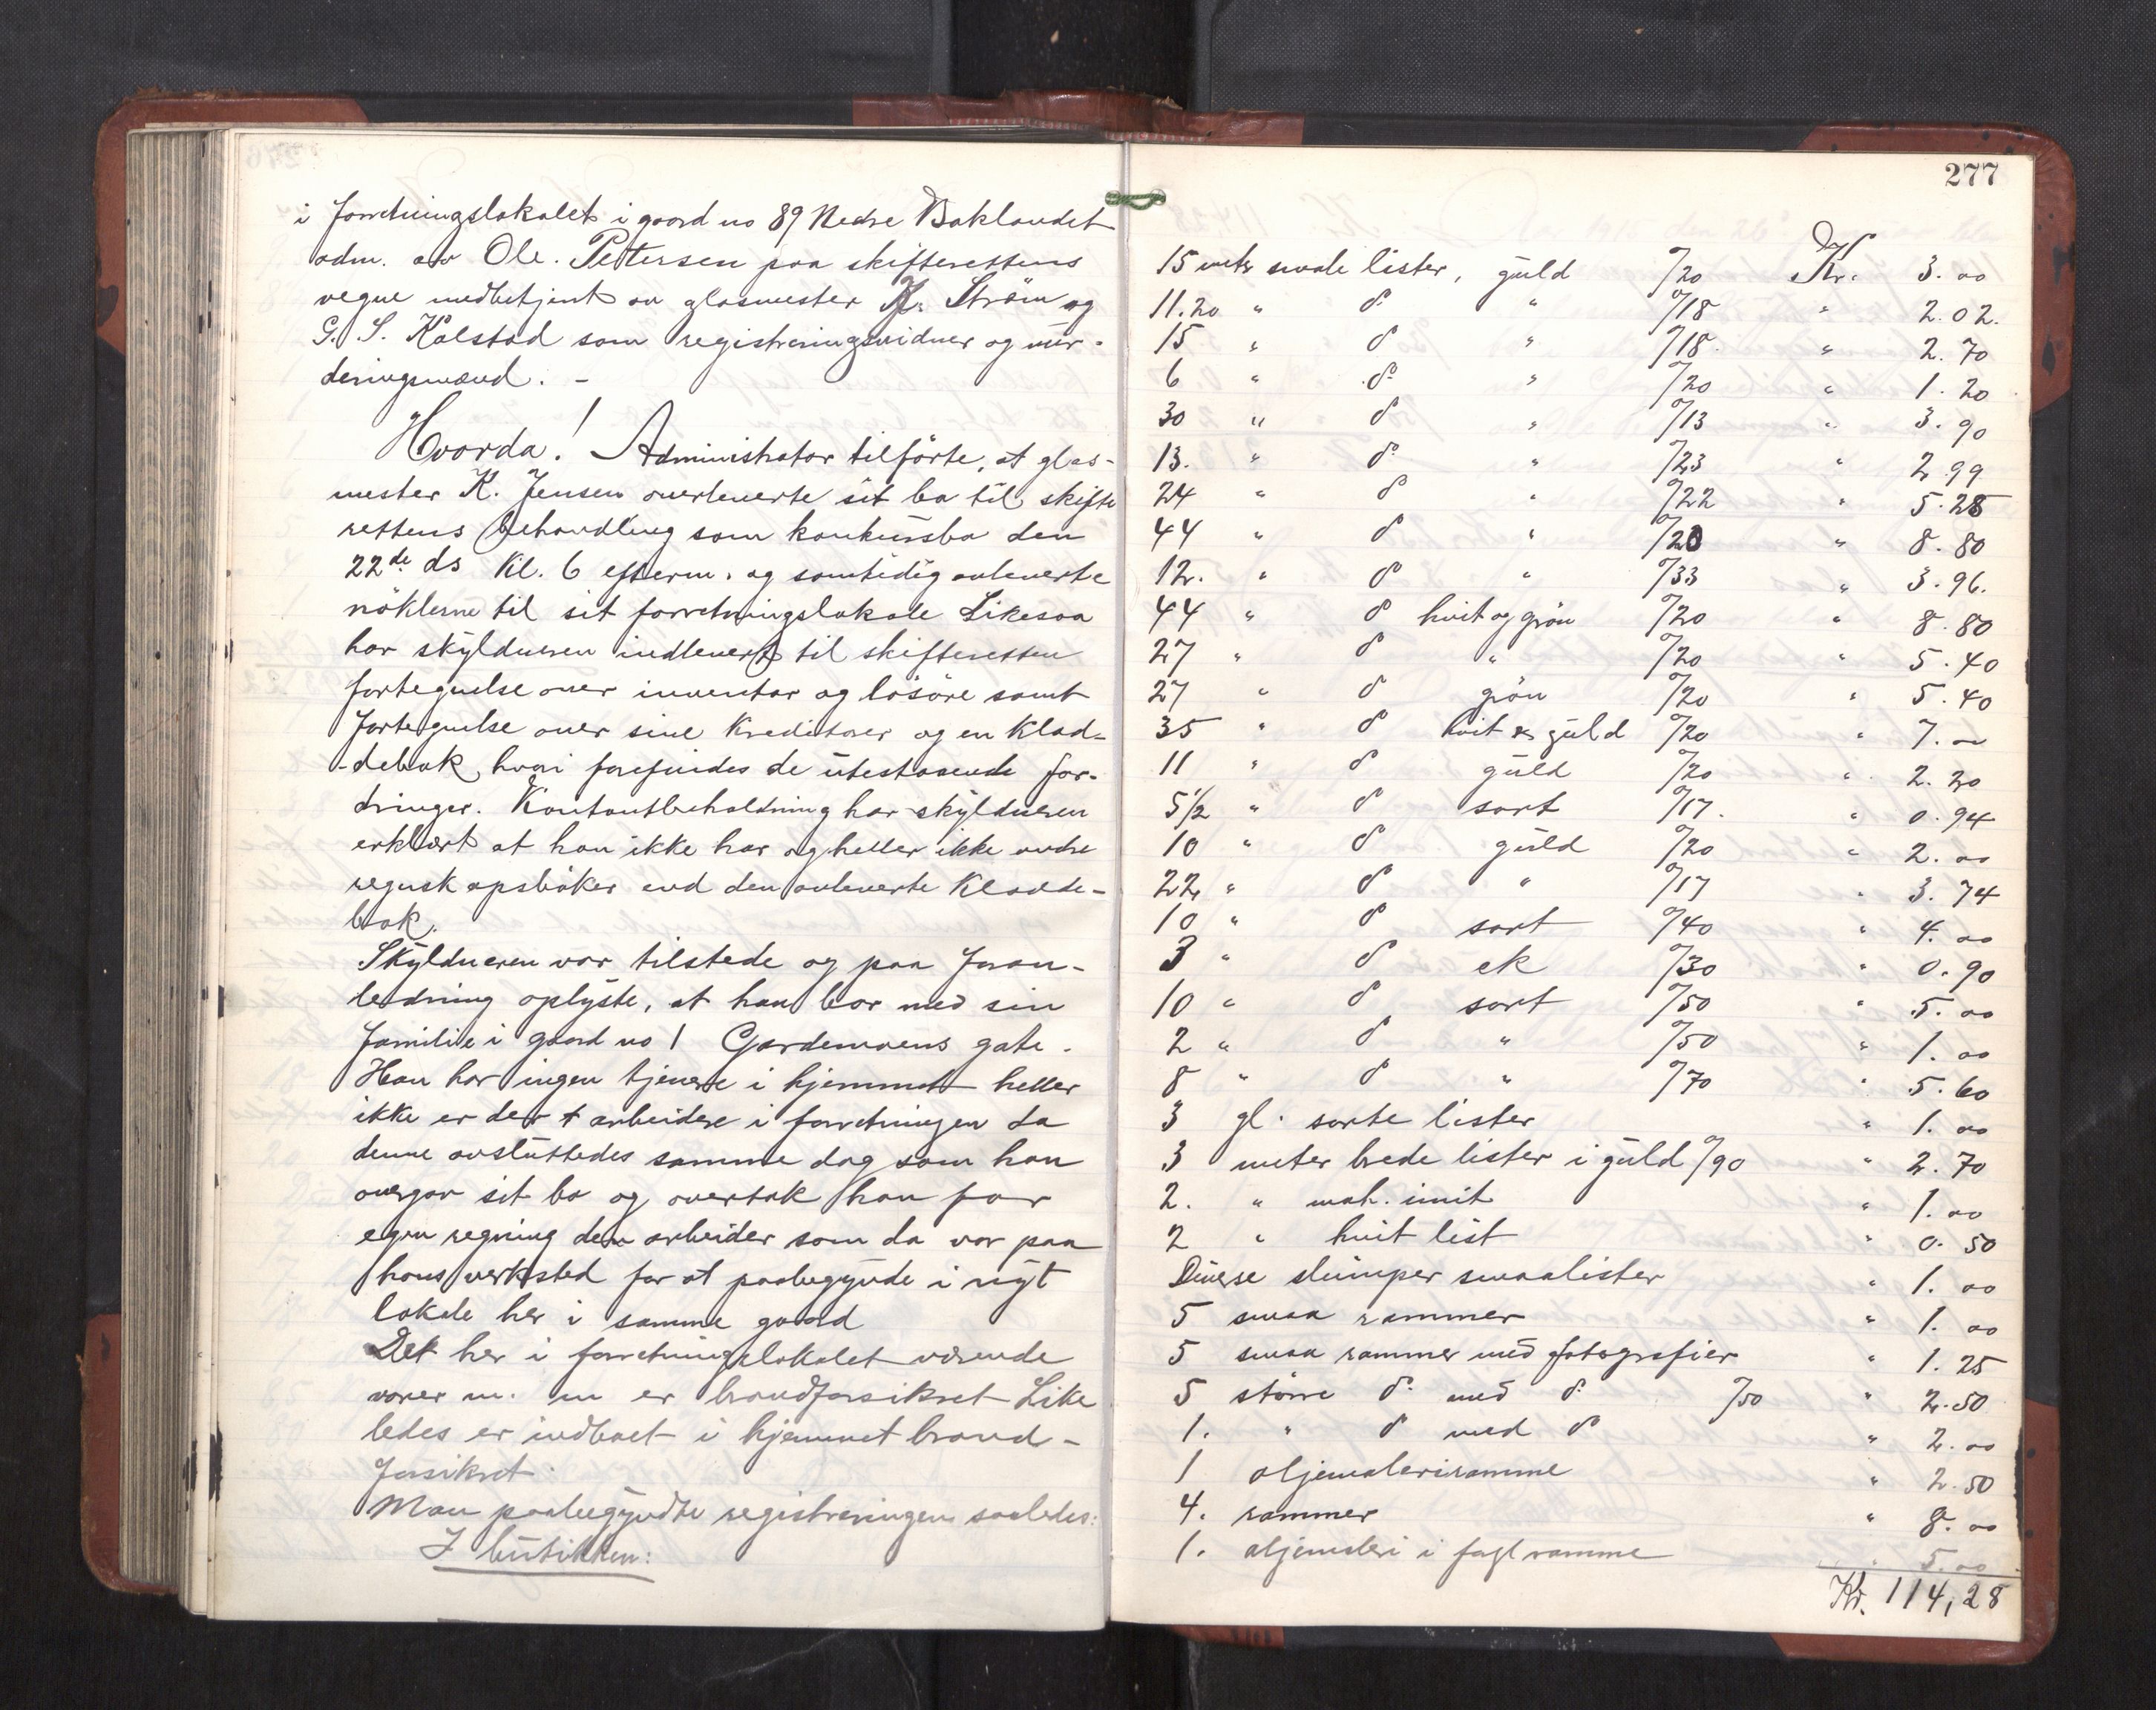 i forretningslokalet i gaard no 89 Nedre Baklandet
adm. av Ole. Pettersen paa skifterettens
vegne medbetjent av glasmester K. Ström og
G. S. Kolstad som registreringsvidner og vur-
deringsmænd. -
Hvorda! Administrator tilförte, at glas-
mester K. Jensen overleverte sit bo til skifte
rettens behandling som konkursbo den
22de ds Kl. 6 efterm. og samtidig avleverte
nöklerne til sit forretningslokale Likesaa
har skyldneren indlevert til skifteretten
fortegnelse over inventar og lösöre samt
fortegnelse over sine Kreditorer og en Klad-
-debok, hvori forefindes de utestaaende for-
dringer. Kontantbeholdning har skyldneren
erklært at han ikke har og heller ikke andre
regnskapsböker end den avleverte Kladde-
bok.
Skyldneren var tilstede og paa foran-
ledning oplyste, at han bor med sin
familie i gaard no 1 Gardemoens gate.
Han har ingen tjenere i hjemmet heller
ikke er der arbeidere i forretningen da
denne avsluttedes samme dag som han
overgav sit bo og overtok han for
egen regning den arbeider som da var paa
hans verksted for at paabegynde i nyt
lokale her i samme gaard
Det her i forretningslokalet værende
varer m. m er brandforsikret Like
ledes er indboet i hjemmet brand-
forsikret.
Man paabegyndte registreringen saaledes:
I butikken:
277
15 meter smale lister, guld a/20 Kr. 3. 00
11.20 " do " a/18 " 2. 02.
15 " do " a/18. " 2. 70
6 " do " a/20 " 1. 20
30 " do " a/13 " 3. 90
13. " do " a/23 " 2. 99
24 " do " a/22 " 5. 28
44 " do " a/20 " 8. 80
12. " do " a/33 " 3. 96.
44 " do hvit og grön a/20 " 8. 80
27 " do " a/20 " 5. 40
27 " do grön a/20 " 5. 40
35 " do hvit & guld a/20 " 7. 00
11 " do guld a/20 " 2. 20
5 1/2 " do sort a/17. " 0. 94
10 " do guld a/20 " 2. 00
22 " do " a/17 " 3. 74
10 " do sort a/40 " 4. 00
3 " do ek a/30 " 0. 90
10 " do sort a/50 " 5. 00
2 " do " a/50 " 1. 00
8 " do " a/70 " 5. 60
3 gl. sorte lister " 1. 00
3 meter brede lister i guld a/90 " 2. 70
2. " mah. imit " 1. 00
2 " hvit list " 0. 50
Diverse slumper smaalister " 1. 00
5 smaa rammer " 1. 00
5 smaa rammer med fotografier " 1. 25
5 större do med do a/50 " 2. 50
1. " do med do " 2. 00
1 oljemaleriramme " 2. 50
4. rammer " 8. 00
1. oljemaleri i ramme " 5. 00
Kr. 114,28